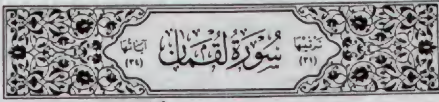 ترتيبها (٣١) سُورَةُ لُقْمَانَ آياتها (٣٤)